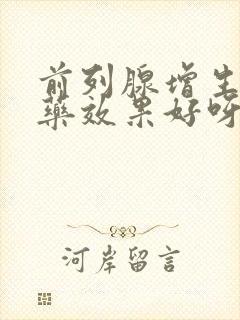 前列腺增生
藥效果好呀
河岸留言